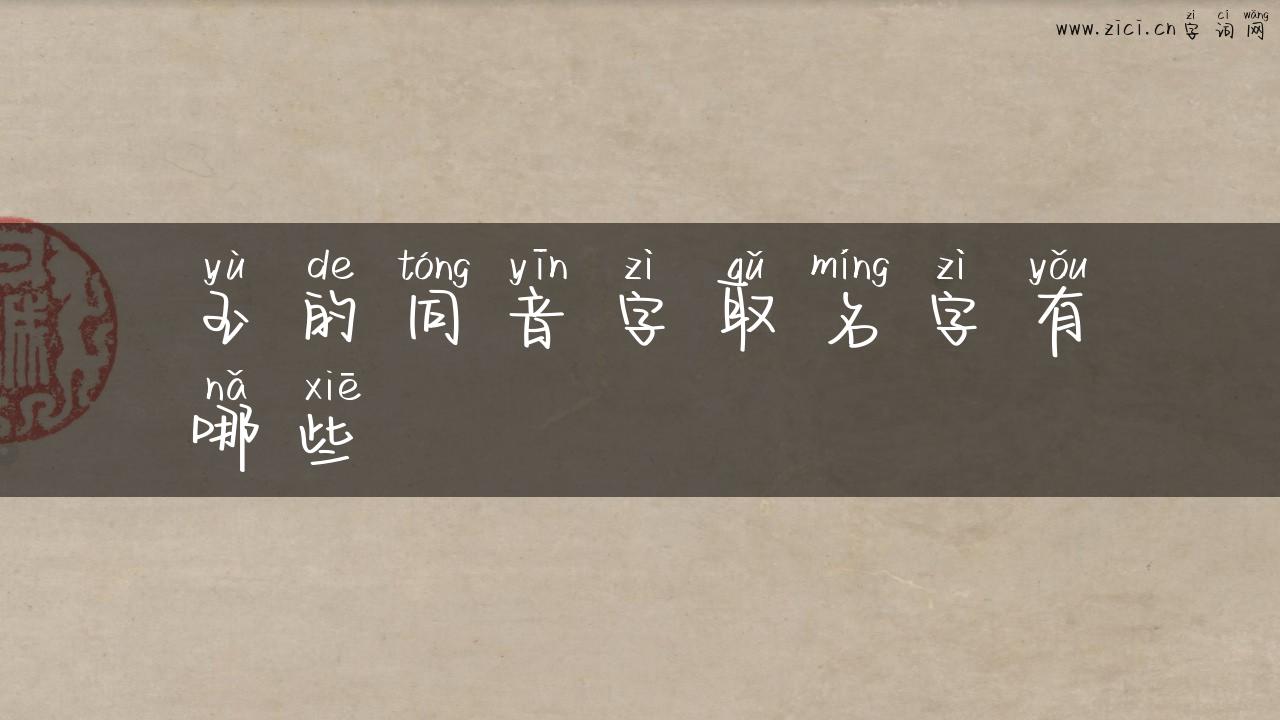 zì cí wǎng
www.zici.cn 字词网
yù de tóng yīn zì qǔ míng zì yǒu
玉的同音字取名字有
nǎ xiē
哪些